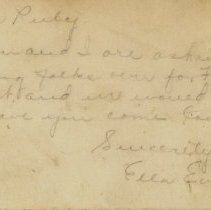 Ruby
and I are askin
ng folks over for
t and we would
ave you come
Sincerely
Ella